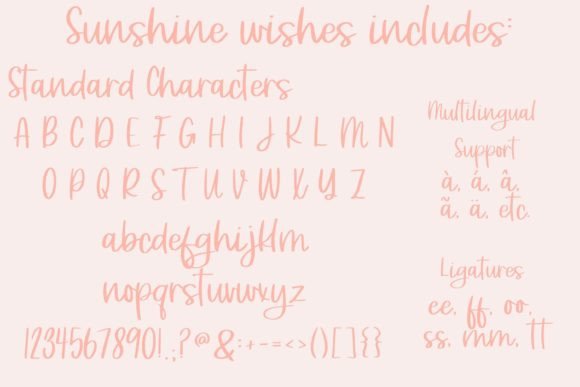 Sunshine wishes includes:
Standard Characters
A B C D E F G H I J K L M N
O P Q R S T U V W X Y Z
abcdefghijklm
nopqrstuvwxyz
1234567890!.,;?@&:+-=<>()[]{}
Multilingual
Support
à, á, â,
ã, ä, etc.
Ligatures
ee, ff, oo,
ss, mm, TT